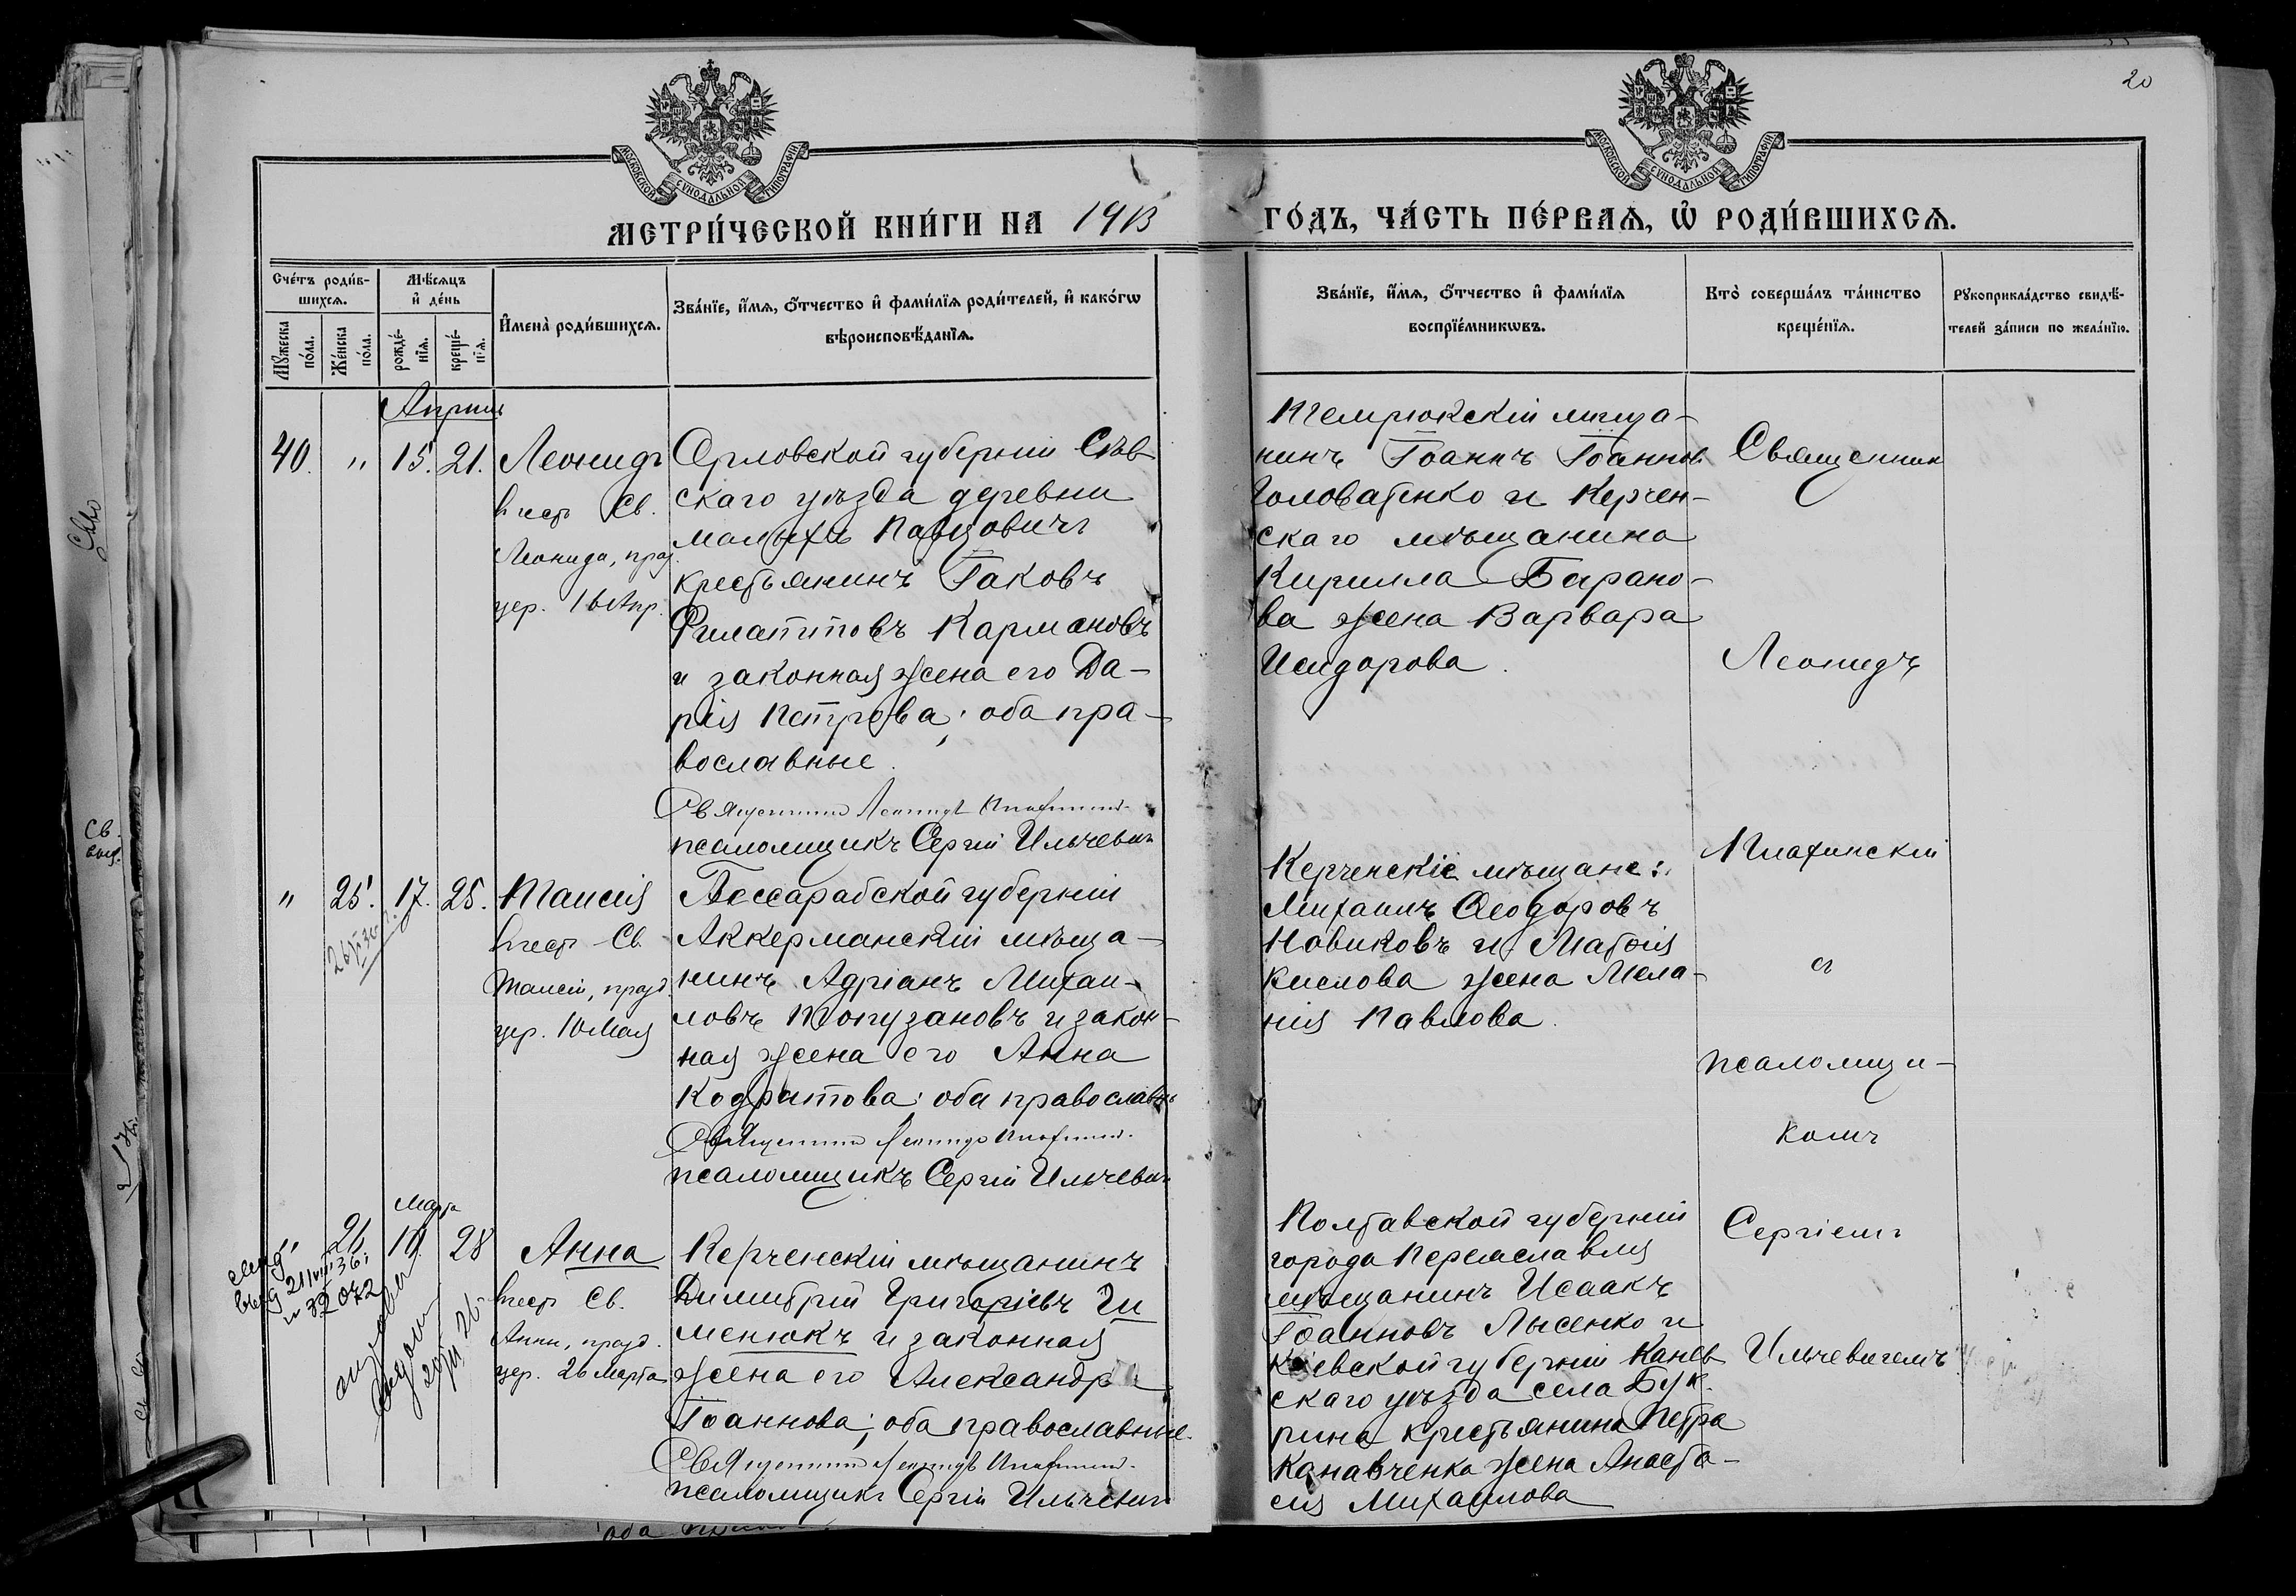 20
МОСКОВСКОЙ СѴНОДАЛЬНОЙ ТИПОГРАФІИ
МОСКОВСКОЙ СѴНОДАЛЬНОЙ ТИПОГРАФІИ
МЕТРИ́ЧЕСКОЙ КНИ́ГИ НА 1913
ГО́ДЪ, ЧА́СТЬ ПЕ́РВАѦ, Ѡ҆ РОДИ́ВШИХСѦ.
Сче́тъ роди́в-
шихсѧ.
Мꙋ́жеска
по́ла.
Же́нска
по́ла.
Мѣ́сѧцъ
и҆ де́нь
рожде́-
нїѧ.
креще́-
нїѧ.
И҆мена̀ роди́вшихсѧ.
Зва́нїе, и҆́мѧ, ѻ҆́тчество и҆ фами́лїѧ роди́телей, и҆ како́гѡ
вѣроисповѣ́данїѧ.
Зва́нїе, и҆́мѧ, ѻ҆́тчество и҆ фами́лїѧ
воспрїе́мникѡвъ.
Кто̀ соверша́лъ та́инство
креще́нїѧ.
Рꙋкоприкла́дство свидѣ́-
телей за́писи по жела́нїю.
Апрѣль
40. " 15. 21.
Леонидъ
въ честь Св.
Леонида, праз.
цер. 16 Апр.
Орловской губерніи Сѣв-
скаго уѣзда деревни
Малыхъ
крестьянинъ Іаковъ
Филатовъ Кармановъ
и законная жена его Да-
рія Петрова; оба пра-
вославные.
Священникъ Леонидъ Кнафинскій
псаломщикъ Сергій Ильчевичъ
Темрюкскій мѣща-
нинъ Іоаннъ Іоанновъ
Головатенко и Керчен-
скаго мѣщанина
Кирилла Барано-
ва жена Варвара
Исидорова.
Священник
Леонидъ
" 25. 17. 25.
Таисія
въ честь Св.
Таисіи, празд.
цер. 10 Мая
Бессарабской губерніи
Аккерманскій мѣща-
нинъ Адріанъ Михаи-
ловъ Топузановъ и закон-
ная жена его Анна
Кодратова; оба православн.
Священникъ Леонидъ
псаломщикъ Сергій Ильчевичъ
Керченскіе мѣщане:
Михаилъ Ѳеодоровъ
Новиковъ и Матѳія
Кислова жена Мела-
нія Павлова.
и
псаломщи-
комъ
Марта
" 26 10. 28
Анна
въ честь Св.
Анны, празд.
цер. 26 Марта
Керченскій мѣщанинъ
Димитрій Григоріевъ Ги
менюкъ и законная
жена его Александра
Іоаннова; оба православные.
Священникъ Леонидъ
псаломщикъ Сергій Ильчевичъ
Полтавской губерніи
города Переяславля
мѣщанинъ Исаакъ
Іоанновъ Лысенко и
Кіевской губерніи Канев
скаго уѣзда села Бук
рина крестьянина Петра
Канавченка жена Анаста-
сія Михаилова
Сергіемъ
Ильчевичемъ